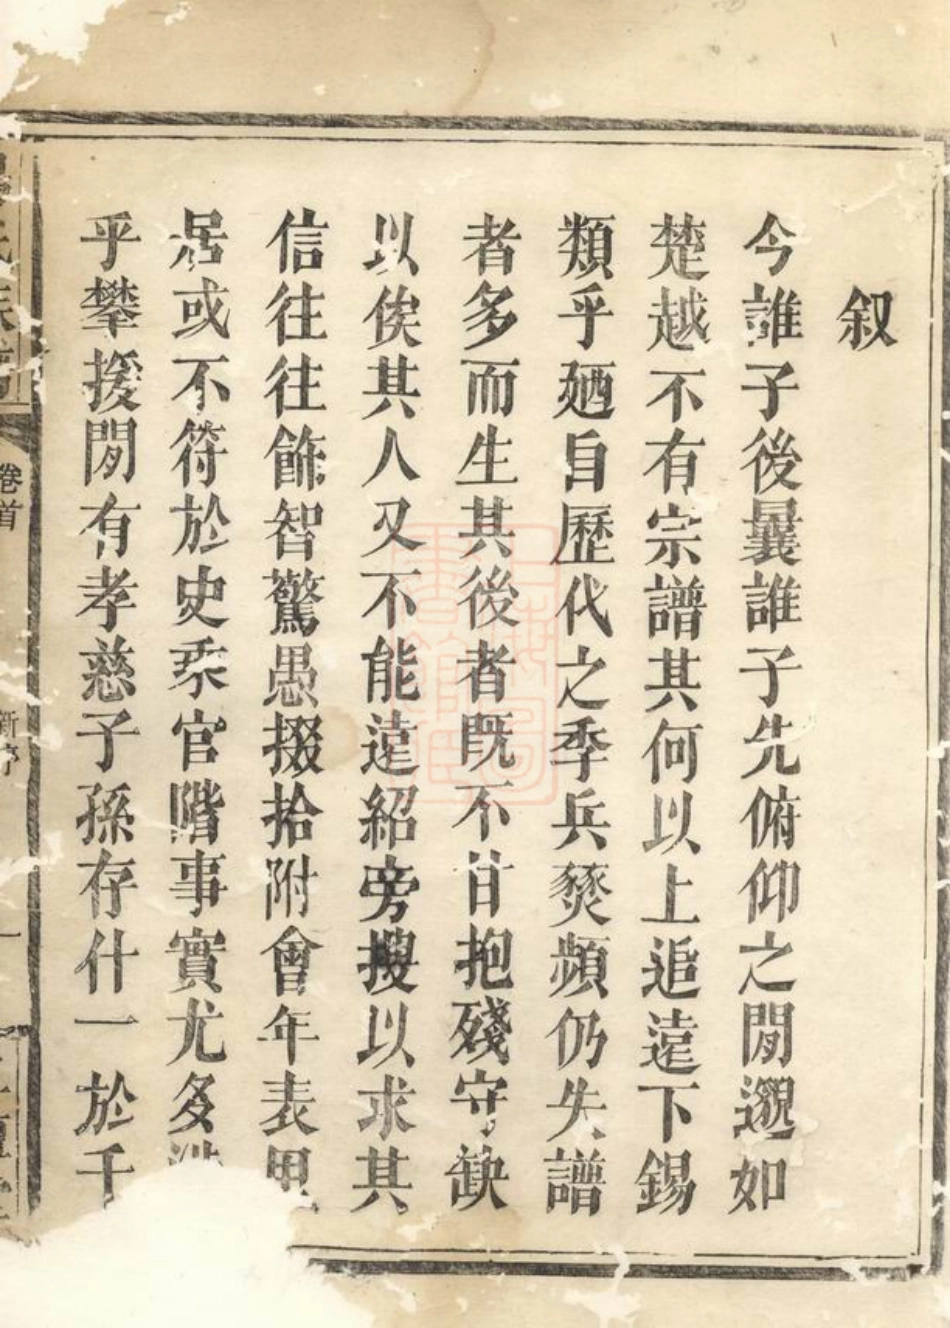 叙
今誰子後曩誰子先俯仰之閒邈如
楚越不有宗譜其何以上追遠下錫
類乎廼自歷代之季兵燹頻仍失譜
者多而生其後者既不甘抱殘守缺
以俟其人又不能遠紹旁搜以求其
信往往飾智驚愚掇拾附會年表里
居或不符於史乘官階事實尤多
乎攀援閒有孝慈子孫存什一於千
卷首
新序
一